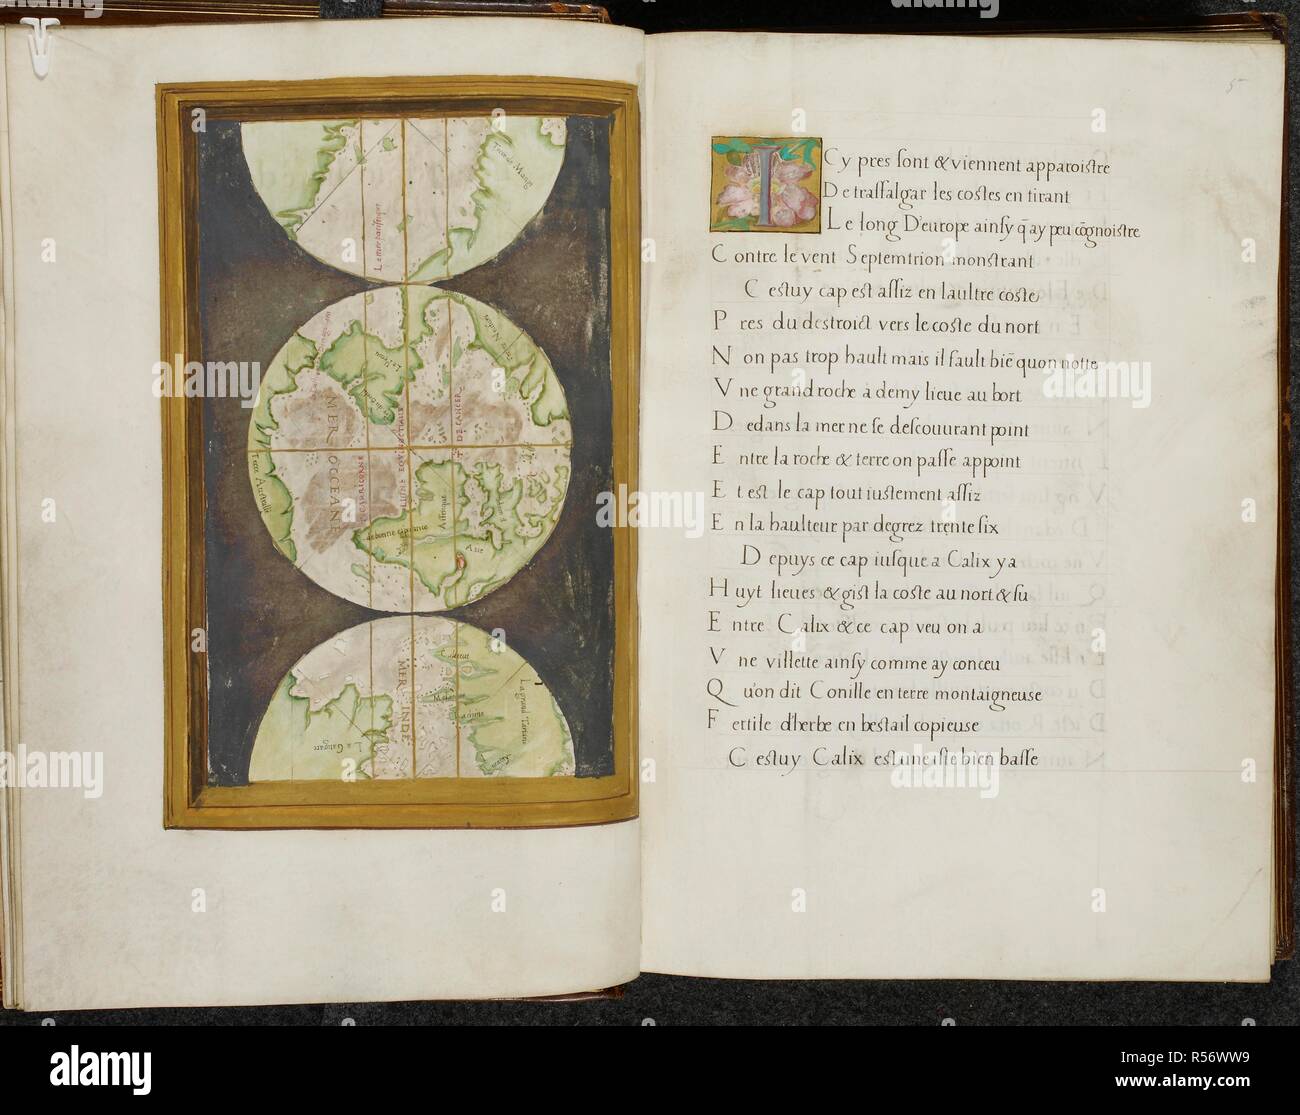 Terre de Mang
Le mer pasifique
MER OCCEANE
CAPRICORNE
LIGNE EQVINOCTIALLE
T DE CANCER
Terre Australle
Affrique
Asie
MER INDE
La grand Tartarie
La Gangare
5
I
Cy pres sont & viennent apparoistre
De traffalgar les costes en tirant
Le long D'europe ainsy q̄ ay peu cōgnoistre
Contre le vent Septemtrion monstrant
Cestuy cap est assiz en laultre coste
Pres du destroict vers le coste du nort
Non pas trop hault mais il fault biē quon notte
Vne grand roche a demy lieue au bort
Dedans la mer ne se descouurant point
Entre la roche & terre on passe appoint
Et est le cap tout iustement assiz
En la haulteur par degrez trente six
Depuys ce cap iusque a Calix y a
Huyt lieues & gist la coste au nort & su
Entre Calix & ce cap veu on a
Vne villette ainsy comme ay conceu
Qu'on dit Conille en terre montaigneuse
Fertile d'herbe en bestail copieuse
Cestuy Calix est une isle bien basse
alamy
a
alamy
Image ID: R56WW9
www.alamy.com